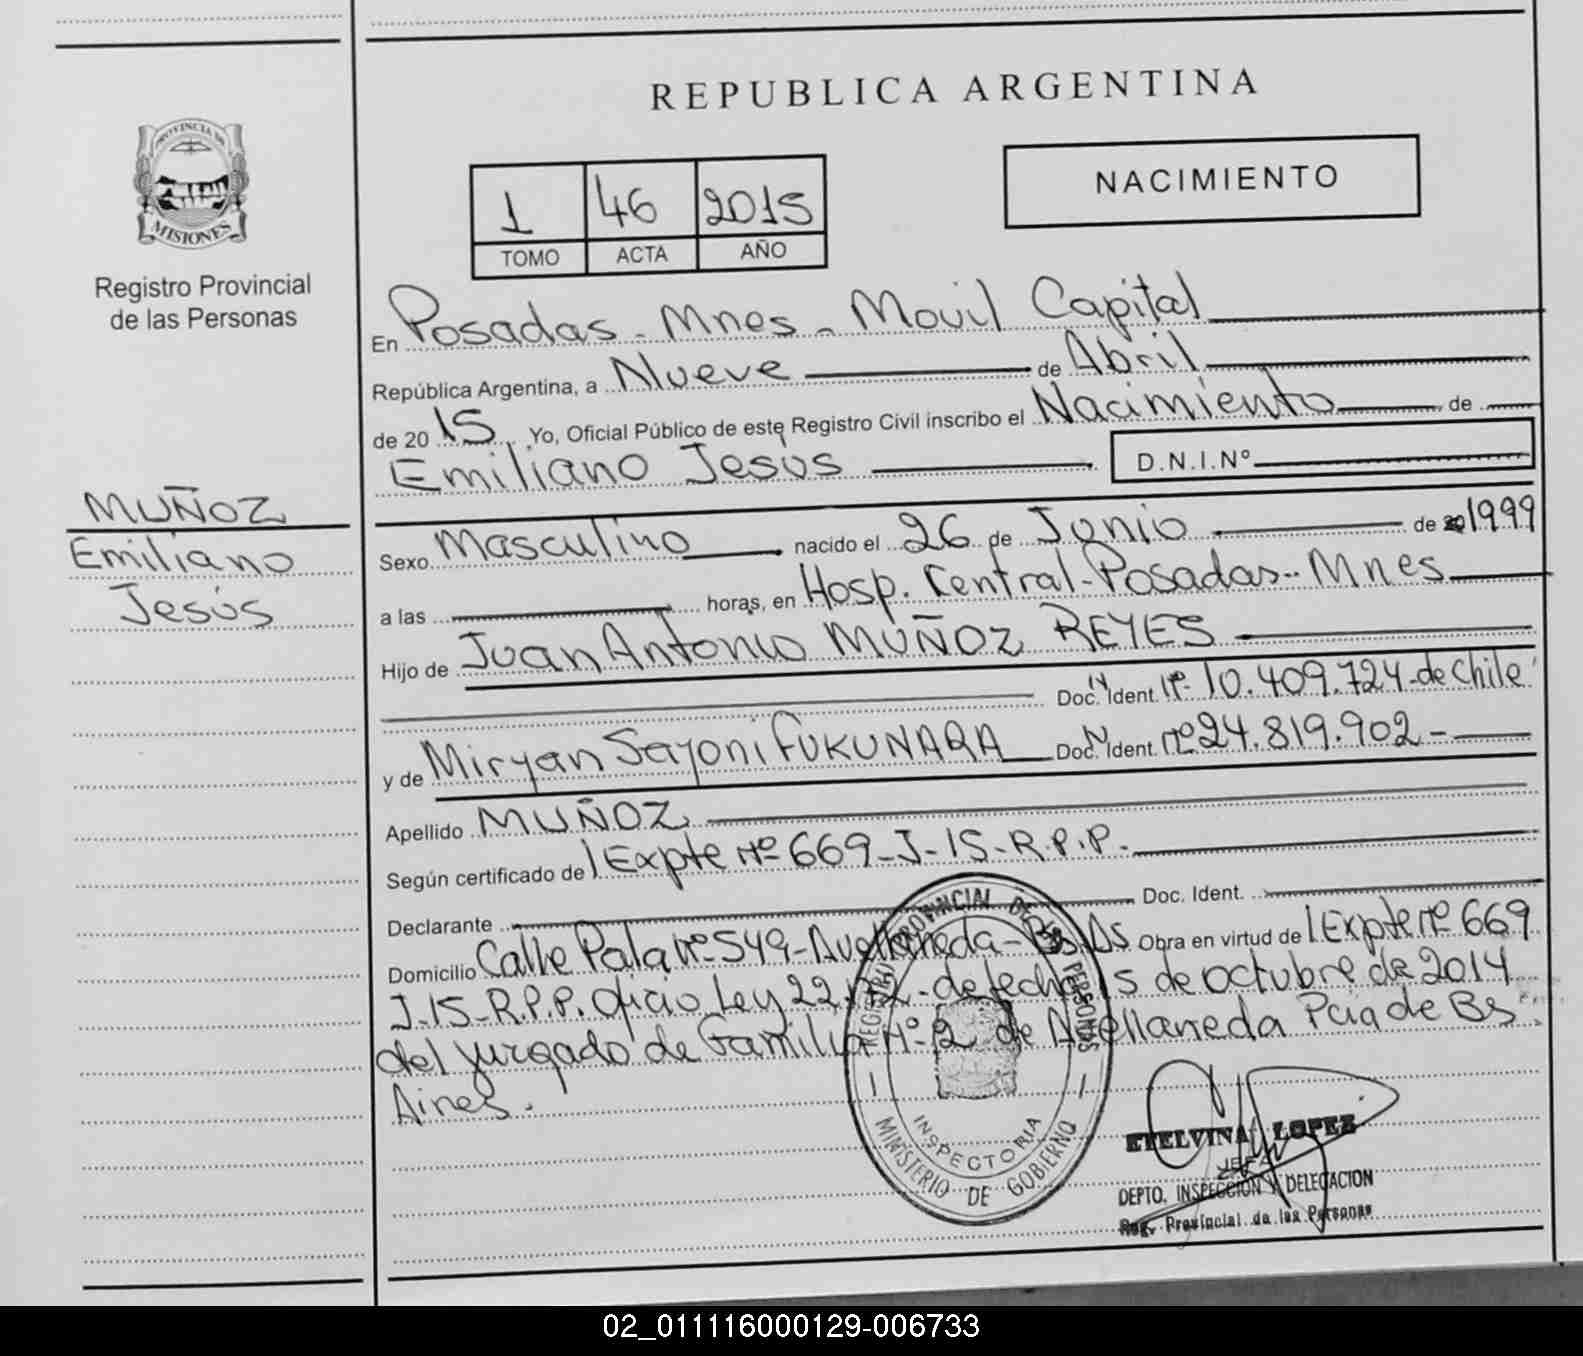 REPUBLICA ARGENTINA
PROVINCIA DE
MISIONES
Registro Provincial
de las Personas
1 46 2015
TOMO ACTA AÑO
NACIMIENTO
En Posadas - Mnes - Movil Capital
República Argentina, a Nueve de Abril
de 2015 Yo, Oficial Público de este Registro Civil inscribo el Nacimiento de
Emiliano Jesús D.N.I.Nº
MUÑOZ
Emiliano
Jesús
Sexo Masculino nacido el 26 de Junio de 1999
a las horas, en Hosp. Central - Posadas - Mnes
Hijo de Juan Antonio MUÑOZ REYES
Doc. Ident. Nº 10.409.724 - de Chile
y de Miryan Sayoni FUKUNARA Doc. Ident. Nº 24.819.902 -
Apellido MUÑOZ
Según certificado de Expte Nº 669 - J - 15 - R.P.P.
Declarante Doc. Ident.
Domicilio Calle Pala Nº 549 - Avellaneda - Bs As Obra en virtud de Expte Nº 669
J - 15 - R.P.P. Oficio Ley 22.172 - de fecha 15 de octubre de 2014
del juzgado de Familia Nº 2 de Avellaneda Pcia de Bs
Aires.
REGISTRO PROVINCIAL DE LAS PERSONAS
INSPECTORIA
MINISTERIO DE GOBIERNO
ETELVINA LOPEZ
JEFA
DEPTO. INSPECCION Y DELEGACION
Reg. Provincial de las Personas
02_011116000129-006733